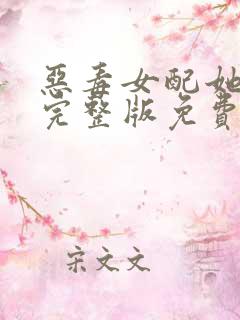 惡毒女配她
完整版免費
宋文文